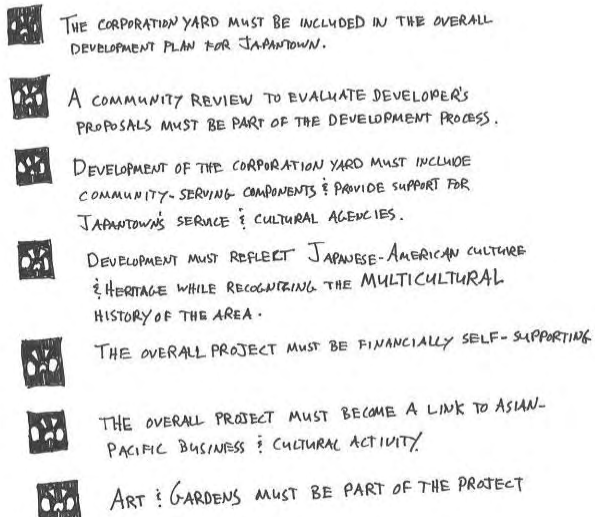 THE CORPORATION YARD MUST BE INCLUDED IN THE OVERALL
DEVELOPMENT PLAN FOR JAPANTOWN.
A COMMUNITY REVIEW TO EVALUATE DEVELOPER'S
PROPOSALS MUST BE PART OF THE DEVELOPMENT PROCESS.
DEVELOPMENT OF THE CORPORATION YARD MUST INCLUDE
COMMUNITY-SERVING COMPONENTS & PROVIDE SUPPORT FOR
JAPANTOWN'S SERVICE & CULTURAL AGENCIES.
DEVELOPMENT MUST REFLECT JAPANESE-AMERICAN CULTURE
& HERITAGE WHILE RECOGNIZING THE MULTICULTURAL
HISTORY OF THE AREA.
THE OVERALL PROJECT MUST BE FINANCIALLY SELF-SUPPORTING
THE OVERALL PROJECT MUST BECOME A LINK TO ASIAN-
PACIFIC BUSINESS & CULTURAL ACTIVITY.
ART & GARDENS MUST BE PART OF THE PROJECT